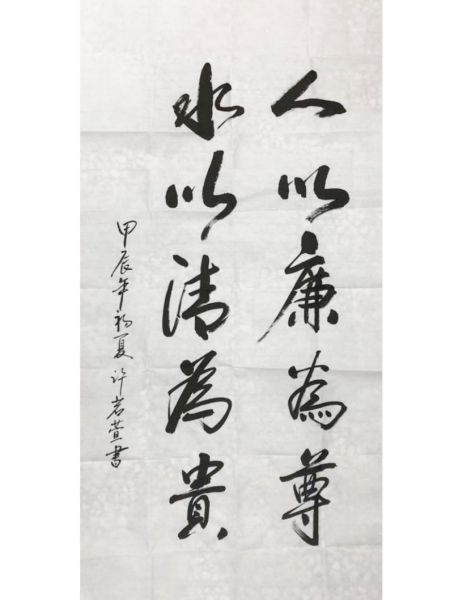 人以廉為尊
水以清為貴
甲辰年初夏 许岩萱書